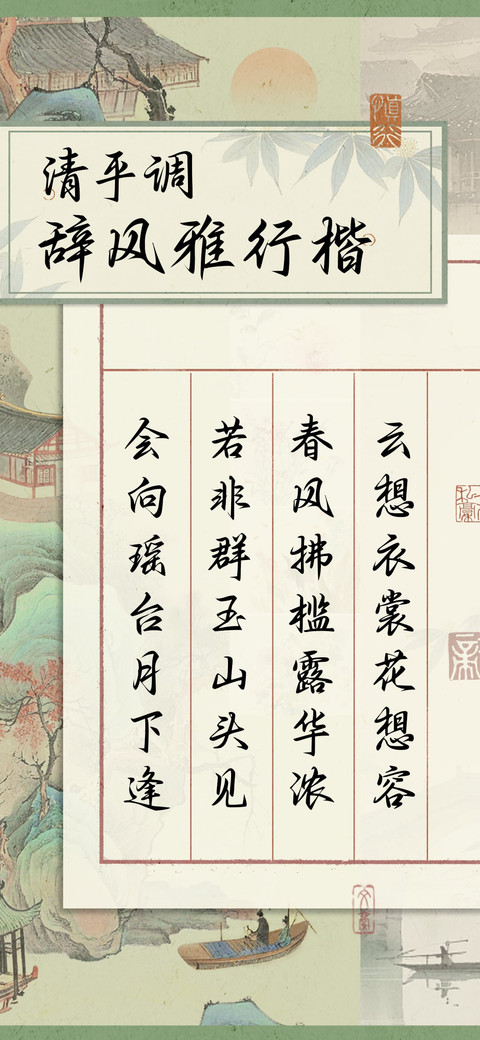 清平调
辞风雅行楷
云想衣裳花想容
春风拂槛露华浓
若非群玉山头见
会向瑶台月下逢